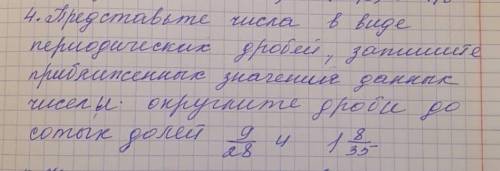 4. Представьте числа в виде
периодических дробей, запишите
приближенных значение данных
числы. округлите дроби до
сотых долей 9/28 и 1 8/35